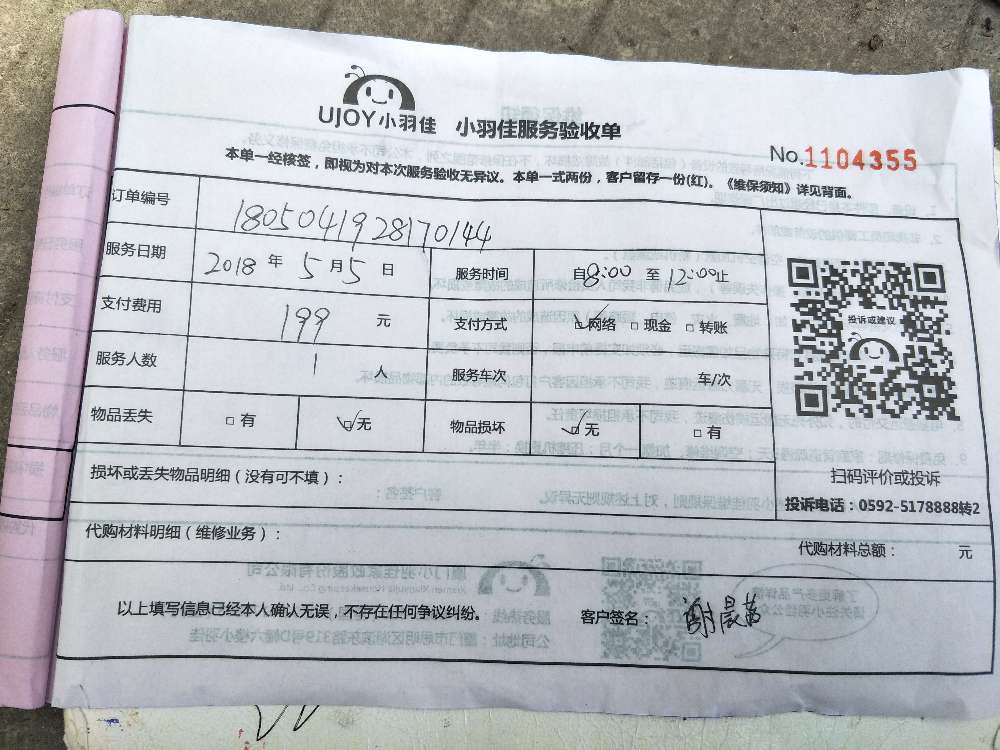 UJOY小羽佳 小羽佳服务验收单
No.1104355
本单一经核签，即视为对本次服务验收无异议。本单一式两份，客户留存一份(红)。《维保须知》详见背面。
订单编号 1805041928170144
服务日期 2018 年 5 月 5 日 服务时间 自8:00 至 12:00止
支付费用 199 元 支付方式 ☑网络 □ 现金 □ 转账
投诉或建议
服务人数 1 人 服务车次 车/次
物品丢失 □ 有 ☑无 物品损坏 ☑无 □ 有
损坏或丢失物品明细（没有可不填）：
扫码评价或投诉
投诉电话：0592-5178888转2
代购材料明细（维修业务）： 代购材料总额： 元
以上填写信息已经本人确认无误，不存在任何争议纠纷。 客户签名：谢晨